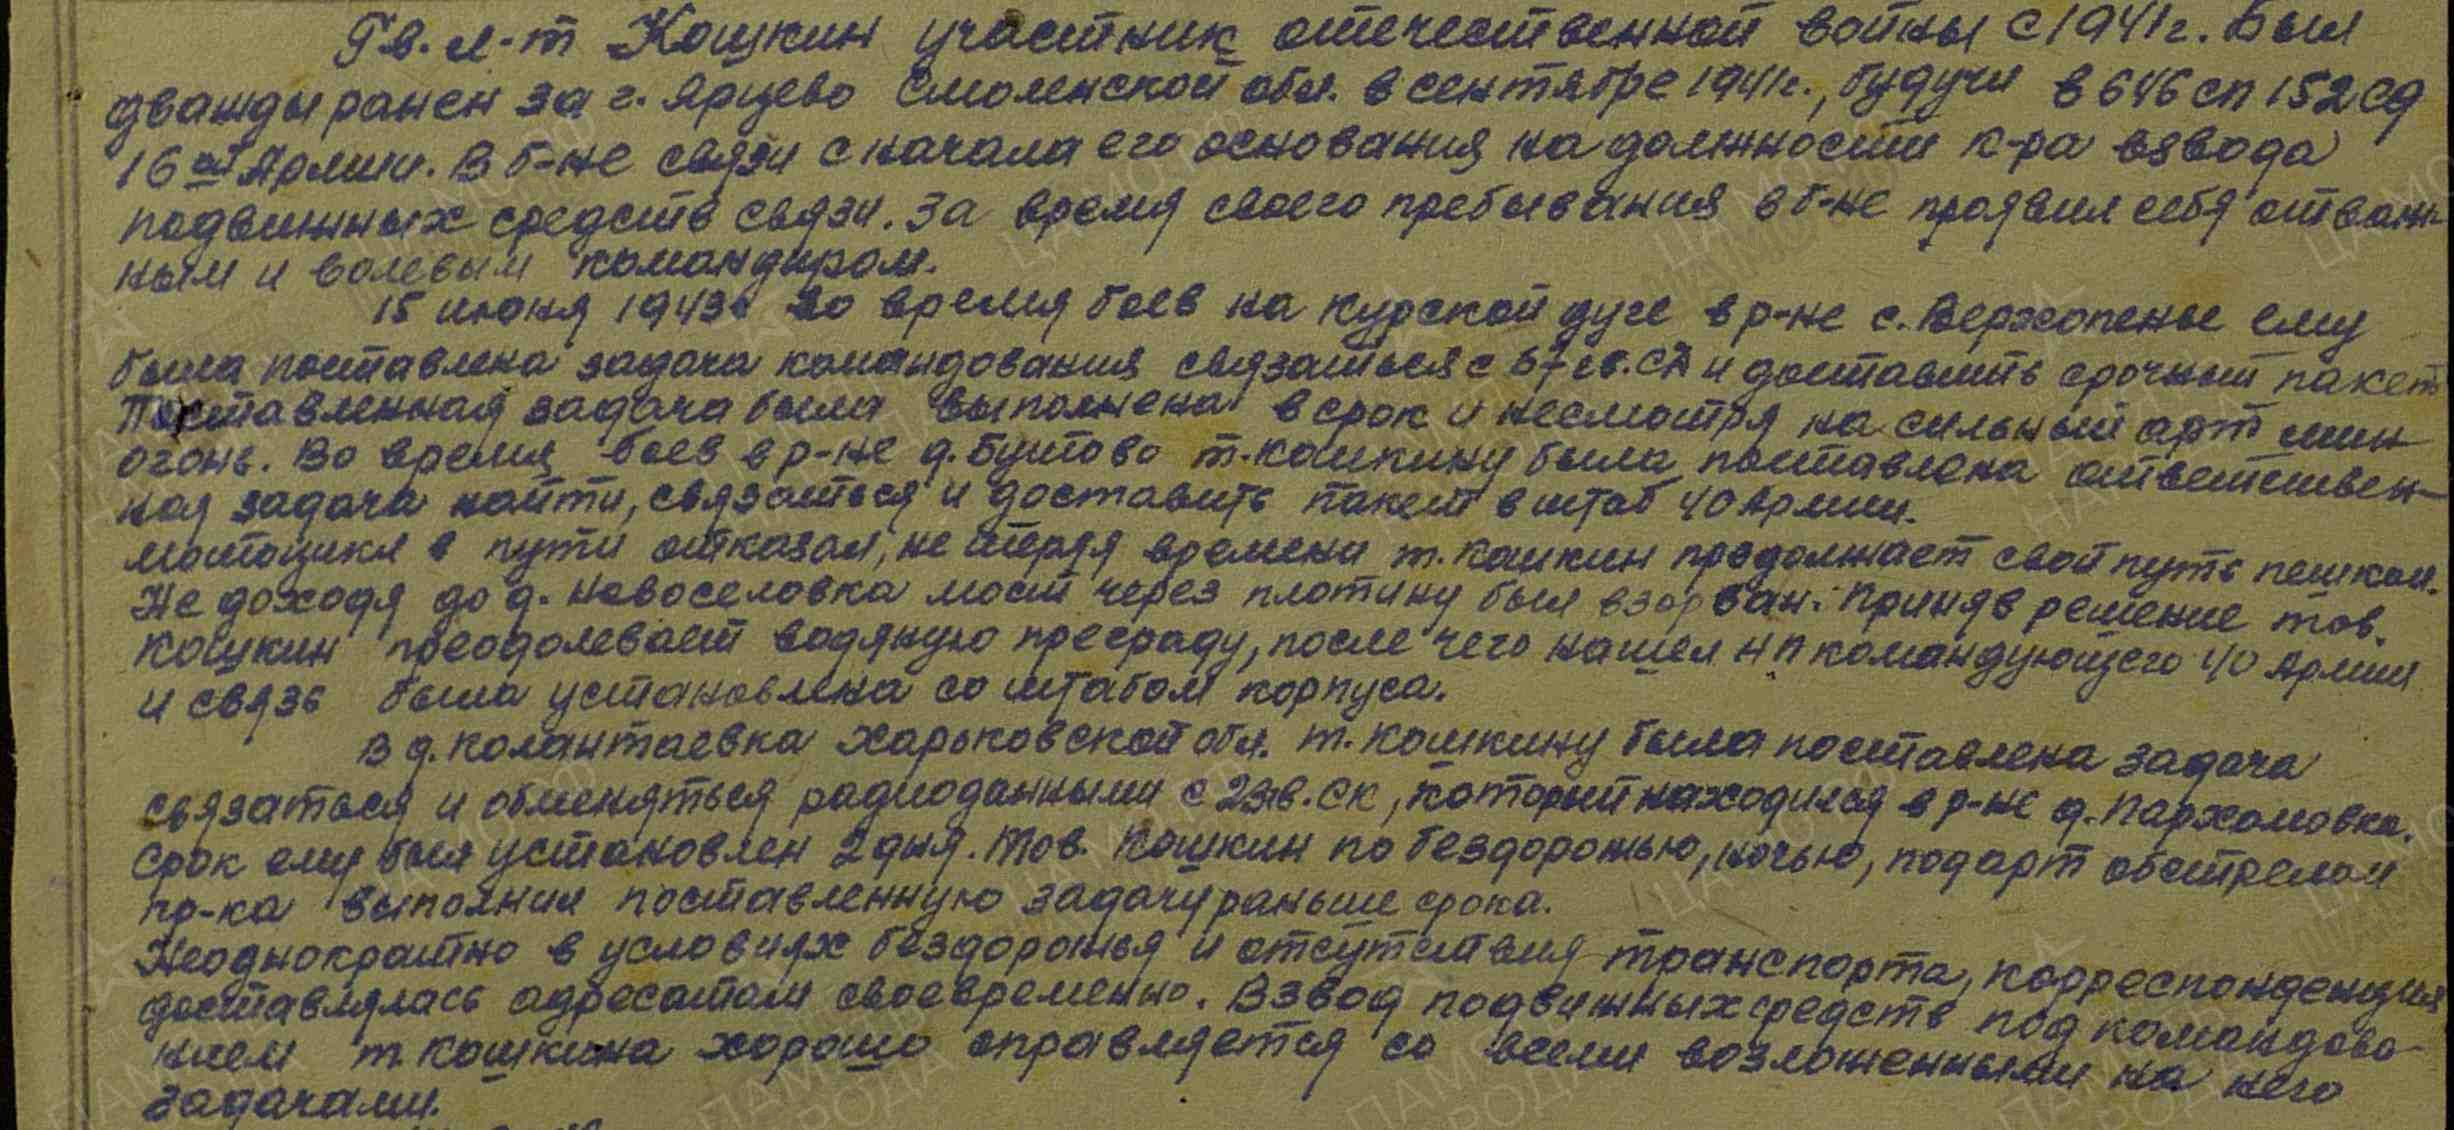 Гв. л-т Кошкин участник отечественной войны с 1941г. Был
дважды ранен за г. Ярцево Смоленской обл. в сентябре 1941г., будучи в 646 сп 152 сд
16ой Армии. В б-не связи с начала его основания на должности к-ра взвода
подвижных средств связи. За время своего пребывания в б-не проявил себя отваж-
ным и волевым командиром.
15 июня 1943г во время боев на Курской дуге в р-не с. Верхопенье ему
была поставлена задача командования связаться с 67 гв. СД и доставить срочный пакет
Поставленная задача была выполнена в срок и несмотря на сильный арт мин
огонь. Во время боев в р-не д. Бутово т. Кошкину была поставлена ответствен-
ная задача найти, связаться и доставить пакет в штаб 40 Армии.
мотоцикл в пути отказал, не теряя времени т. Кошкин продолжает свой путь пешком.
Не доходя до д. Новоселовка мост через плотину был взорван. Приняв решение тов.
Кошкин преодолевает водяную преграду, после чего нашел НП командующего 40 Армии
и связь была установлена со штабом корпуса.
В д. Колантаевка Харьковской обл. т. Кошкину была поставлена задача
связаться и обменяться радиоданными с 23гв. ск, который находился в р-не д. Пархомовка.
Срок ему был установлен 2 дня. Тов. Кошкин по бездорожью, ночью, под арт обстрелом
пр-ка выполнил поставленную задачу раньше срока.
Неоднократно в условиях бездорожья и отсутствия транспорта, корреспонденция
доставлялась адресатам своевременно. Взвод подвижных средств под командова-
нием т. Кошкина хорошо справляется со всеми возложенными на него
задачами.